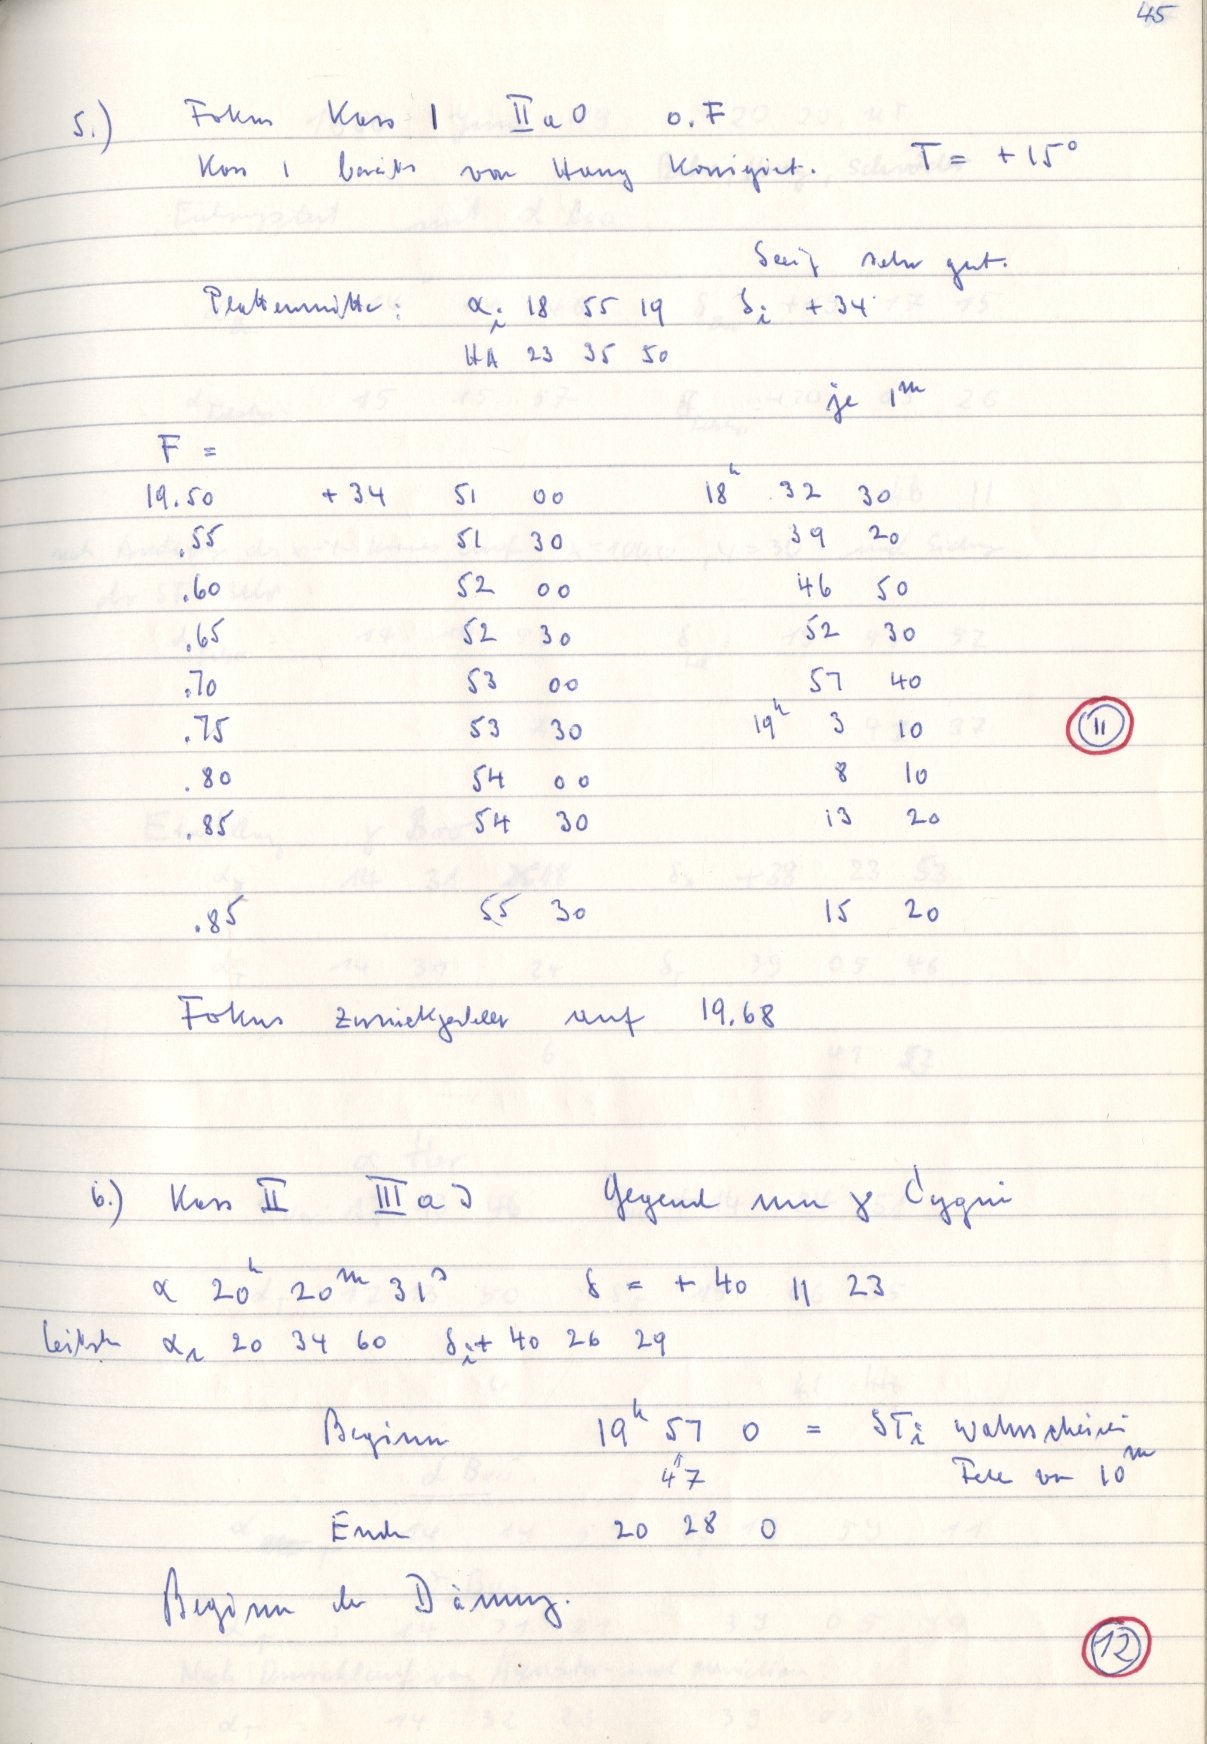 45
5.) Fokus Kass I II a O o. F
Kass 1 bereits von Haug korrigiert. T = +15°
Seeing sehr gut.
Plattenmitte: αi 18 55 19 δi +34
HA 23 35 50
je 1m
F =
19.50 +34 51 00 18h 32 30
.55 51 30 39 20
.60 52 00 46 50
.65 52 30 52 30
.70 53 00 57 40
.75 53 30 19h 3 10
11
.80 54 00 8 10
.85 54 30 13 20
.85 55 30 15 20
Fokus zurückgestellt auf 19.68
6.) Kass II III a J Gegend um γ Cygni
α 20h 20m 31s δ = +40 11 23
Leitst. αi 20 34 60 δi + 40 26 29
Beginn 19h 57 0 = STi wahrscheinl.
47 von 10m
Ende 20 28 0
Beginn der Dämmg.
12